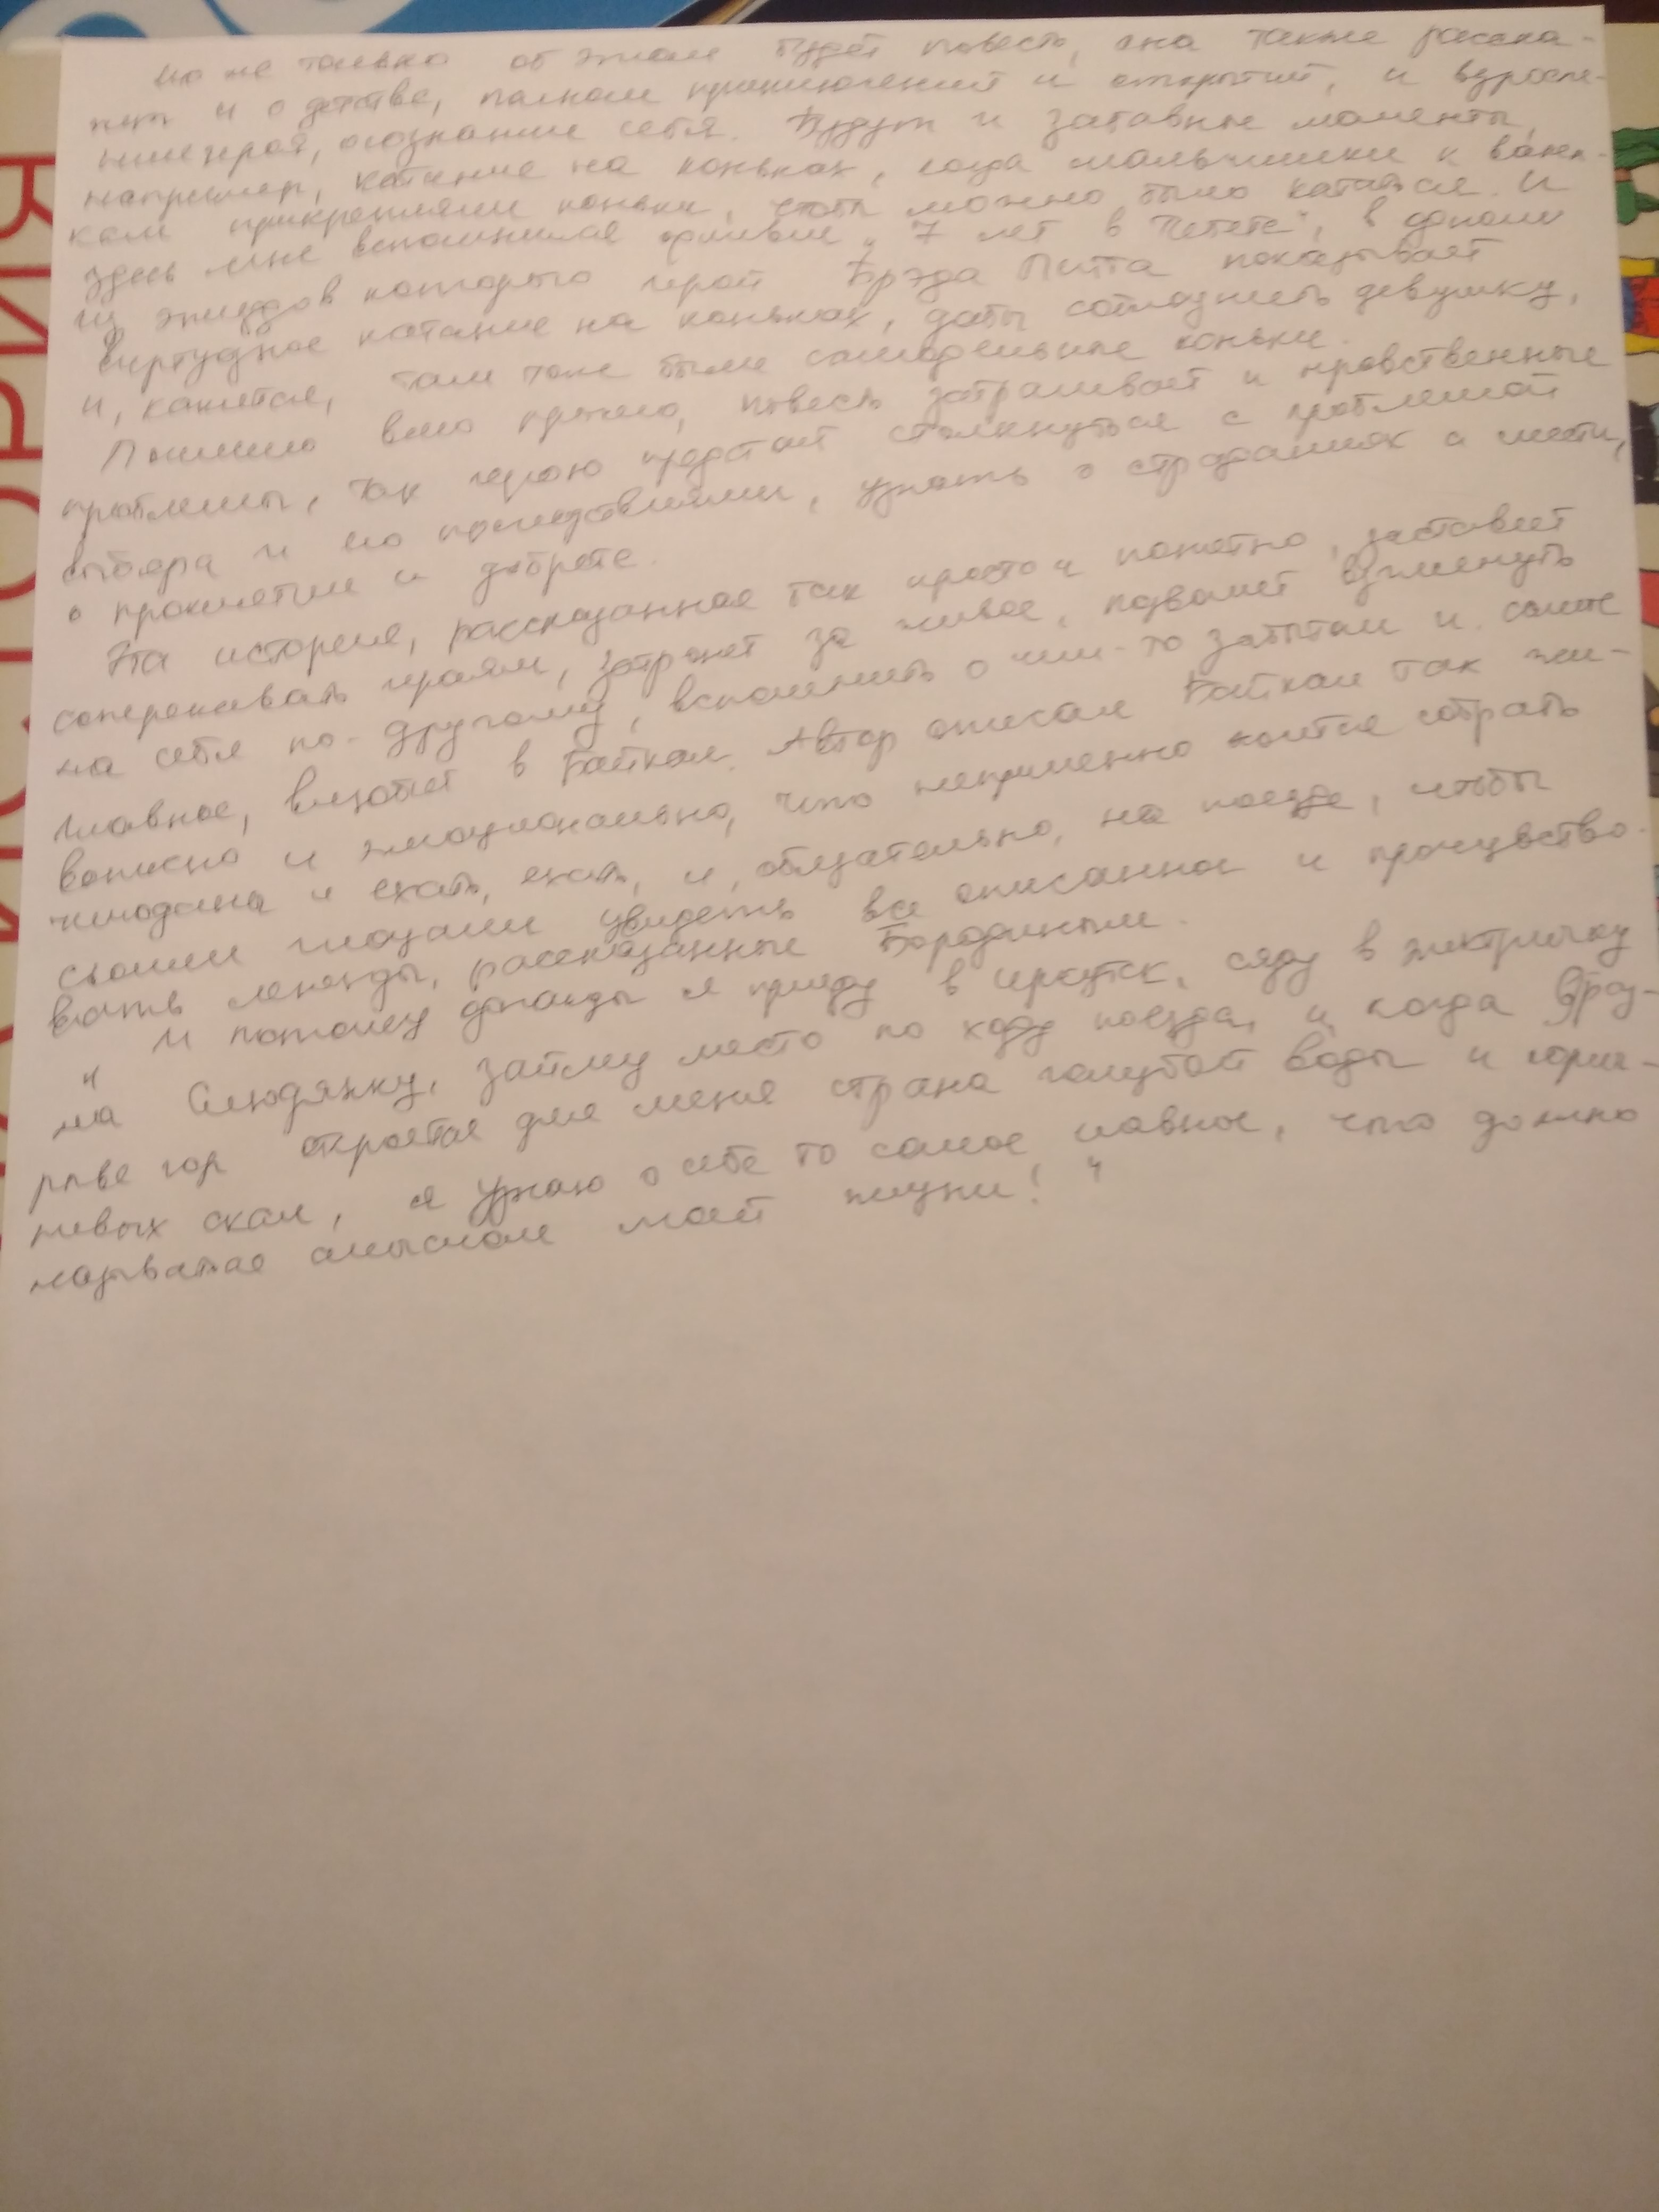 Но не только об этом будет повесть, она также расска-
жет и о детстве, полном приключений и открытий, и взросле-
нии героя, осознание себя. Будут и забавные моменты,
например, катание на коньках, когда мальчишки к вален-
кам прикрепляли коньки, чтобы можно было кататься. И
здесь мне вспомнился фильм "7 лет в Тибете", в одном
из эпизодов которого герой Брэда Питта показывает
виртуозное катание на коньках, дабы соблазнить девушку,
и, кажется, там тоже были самодельные коньки.
Помимо всего прочего, повесть затрагивает и нравственные
проблемы, так герою предстоит столкнуться с проблемой
выбора и его последствиями, узнать о страданиях и мести,
о проклятии и доброте.
Эта история, рассказанная так просто и понятно, заставит
сопереживать героям, затронет за живое, позволит взглянуть
на себя по-другому, вспомнить о чем-то забытом и, самое
главное, влюбит в Байкал. Автор описал Байкал так жи-
вописно и эмоционально, что непременно хочется собрать
чемодана и ехать, ехать, и, обязательно, на поезде, чтобы
своими глазами увидеть все описанное и прочувство-
вать легенды, рассказанные Бородиным.
"И потому однажды я приеду в Иркутск, сяду в электричку
на Слюдянку, займу место по ходу поезда, и когда вдруг
откроется для меня страна голубой воды и
скал, я узнаю о себе то самое главное, что должно
называться смыслом моей жизни!"